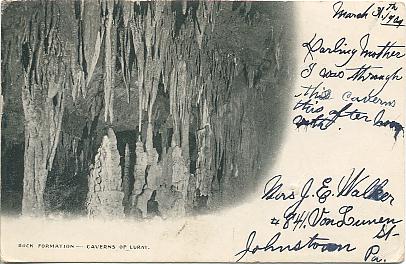 March 31th
Darling Mother
I was through
this cavern
this afternoon
Mrs J. E. Walker
#84. Von Lunen
St
Johnstown
Pa.
ROCK FORMATION — CAVERNS OF LURAY.